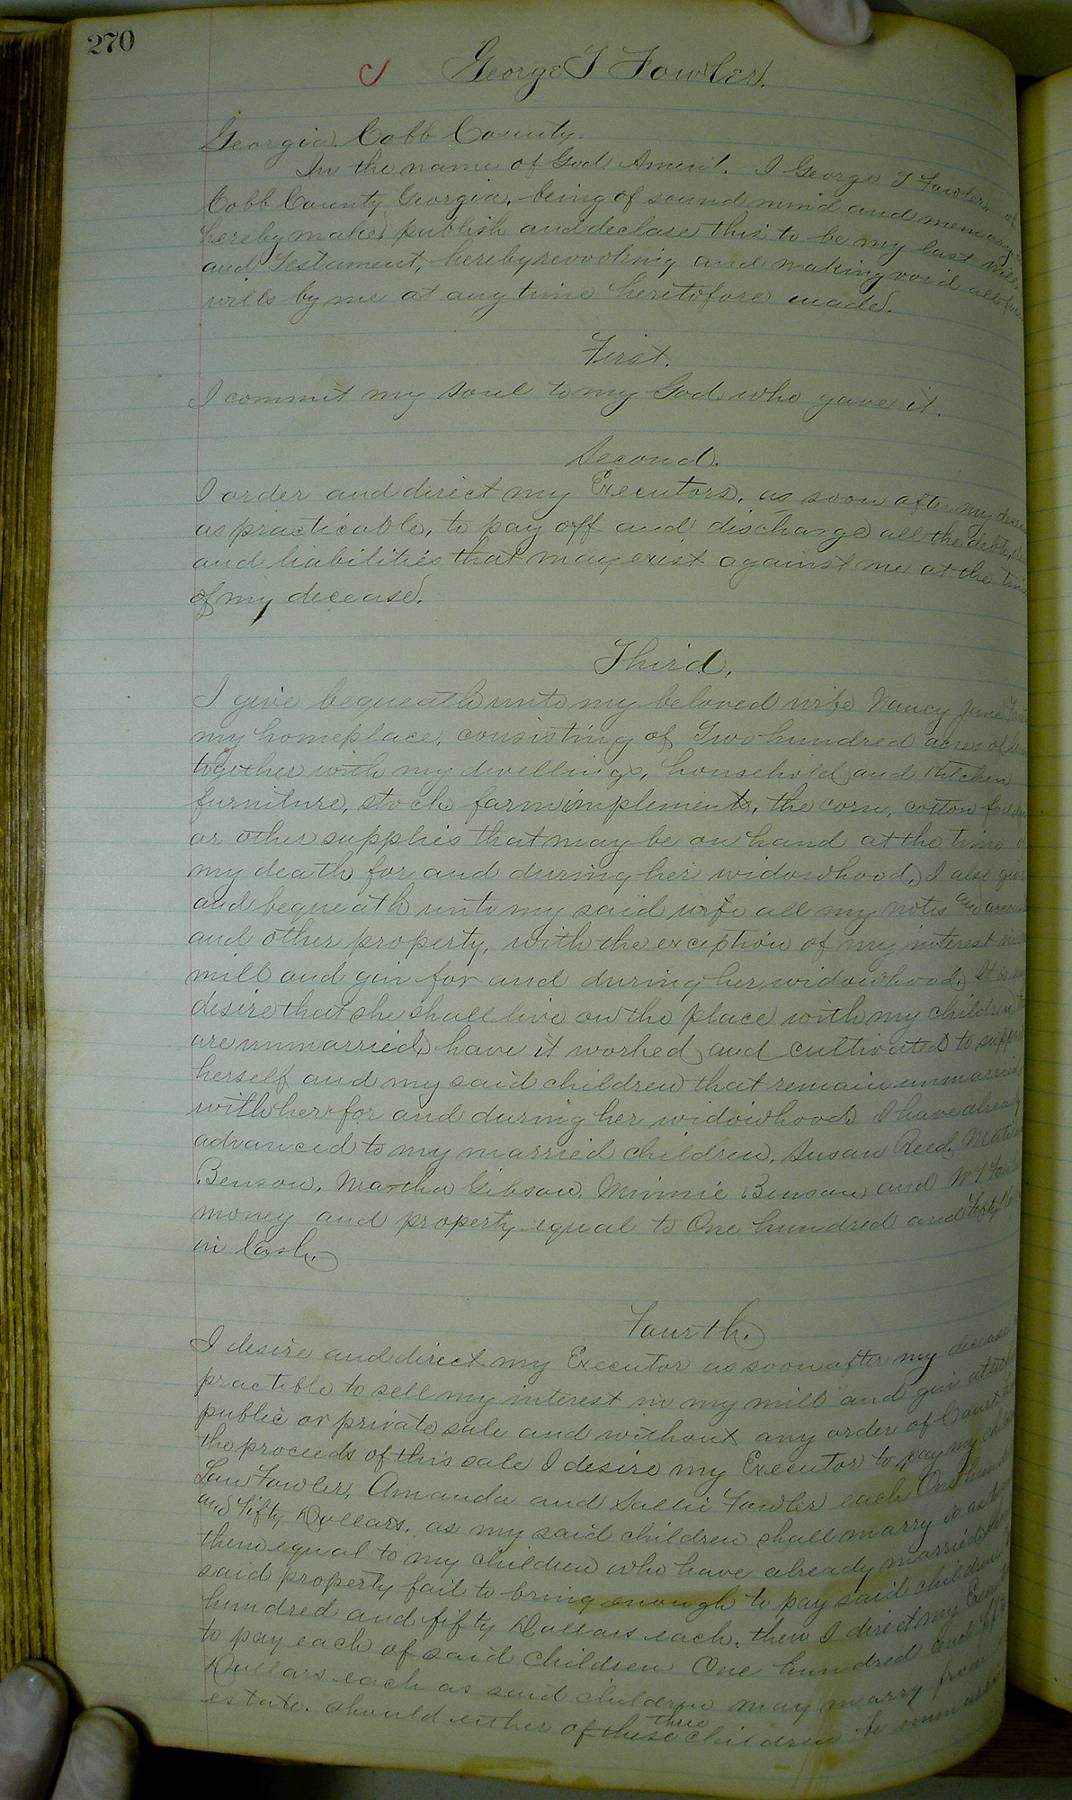 270
George T Fowler.
Georgia Cobb County.
In the name of God Amen. I George T Fowler, of
Cobb County Georgia, being of sound mind and memory
hereby make, publish and declare this to be my last will
and Testament, hereby revooking and making void all
wills by me at any time heretofore made.
First.
I commit my soul to my God who gave it.
Second.
I order and direct my Executors, as soon after my
as practicable, to pay off and discharge all the debts,
and liabilities that may exist against me at the time
of my decease.
Third.
I give bequeath unto my beloved wife Nancy Jane
my homeplace, consisting of Two hundred acres of
together with my dwellings, household and kitchen
furniture, stock farm implements, the corn, cotton
or other supplies that may be on hand at the time
my death for and during her widowhood, I also give
and bequeath unto my said wife all my notes and
and other property, with the exception of my interest
mill and gin for and during her widowhood. It is
desire that she shall live on the place with my children
are unmarried, have it worked and cultivated to support
herself and my said children that remain unmarried
with her for and during her widowhood. I have already
advanced to my married children, Susan Reed,
Benson, Martha Gibson, Minnie Benson and
money and property equal to One hundred and fifty
in Cash.
Fourth.
I desire and direct my Executor as soon after my decease
practible to sell my interest in my mill and gin
public or private sale and without any order of Court
the proceeds of this sale I desire my Executor to pay my
Lou Fowler, Amanda and Sallie Fowler each One hundred
and Fifty Dollars, as my said children shall marry
them equal to my children who have already married
said property fail to bring enough to pay said children
hundred and fifty Dollars each, then I direct my
to pay each of said children One hundred and
Dollars each as said children may marry from
estate. should either of these three children be